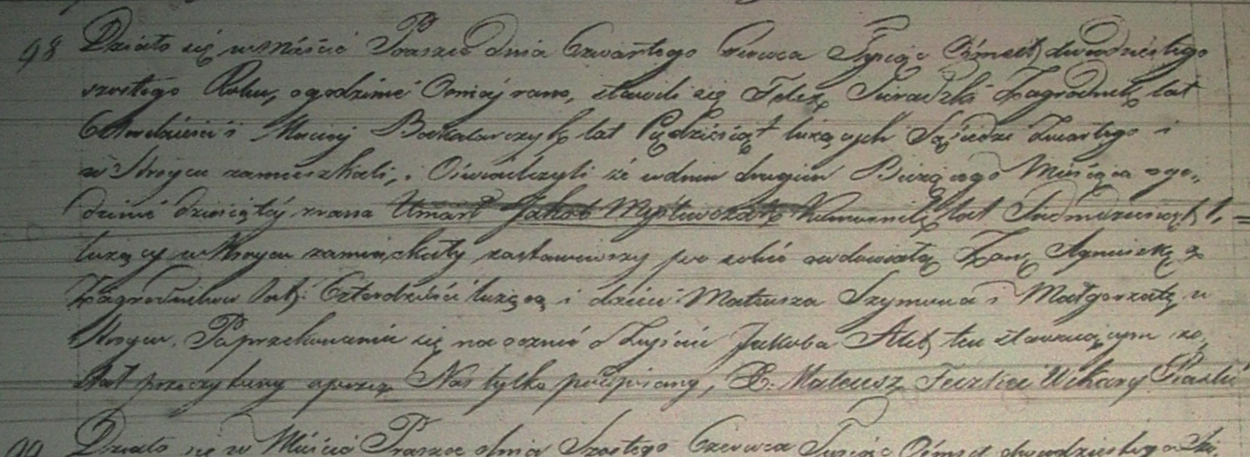 98 Działo się w Mieście Praszce dnia Czwartego Czerwca Tysiąc Ośmset dwudziestego
szóstego Roku, o godzinie Ósmej rano, stawili się Felix Zagrodnik lat
Czterdzieści i Maciej Bakalarczyk lat Pięćdziesiąt liczących Sąsiedzi Zmarłego i
w Stroycu zamieszkali, i Oświadczyli że w dniu drugim Bieżącego Miesiąca o go„
dzinie dziesiątej z rana Umarł Jakób Komornik lat Siedmdziesiąt
liczący w Stroycu zamieszkały zostawiwszy po sobie owdowiałą Żonę Agnieszkę z
lat Czterdzieści liczącą i dzieci Mateusza Szymona i Małgorzatę w
Stroycu. Po przekonaniu się naocznie o Zejściu Jakuba Akt ten stawającym zo„
stał przeczytany a przez Nas tylko podpisany, X. Mateusz Wikary Praszki
99 Działo się w Mieście Praszce dnia Szóstego Czerwca Tysiąc Ośmset dwudziestego